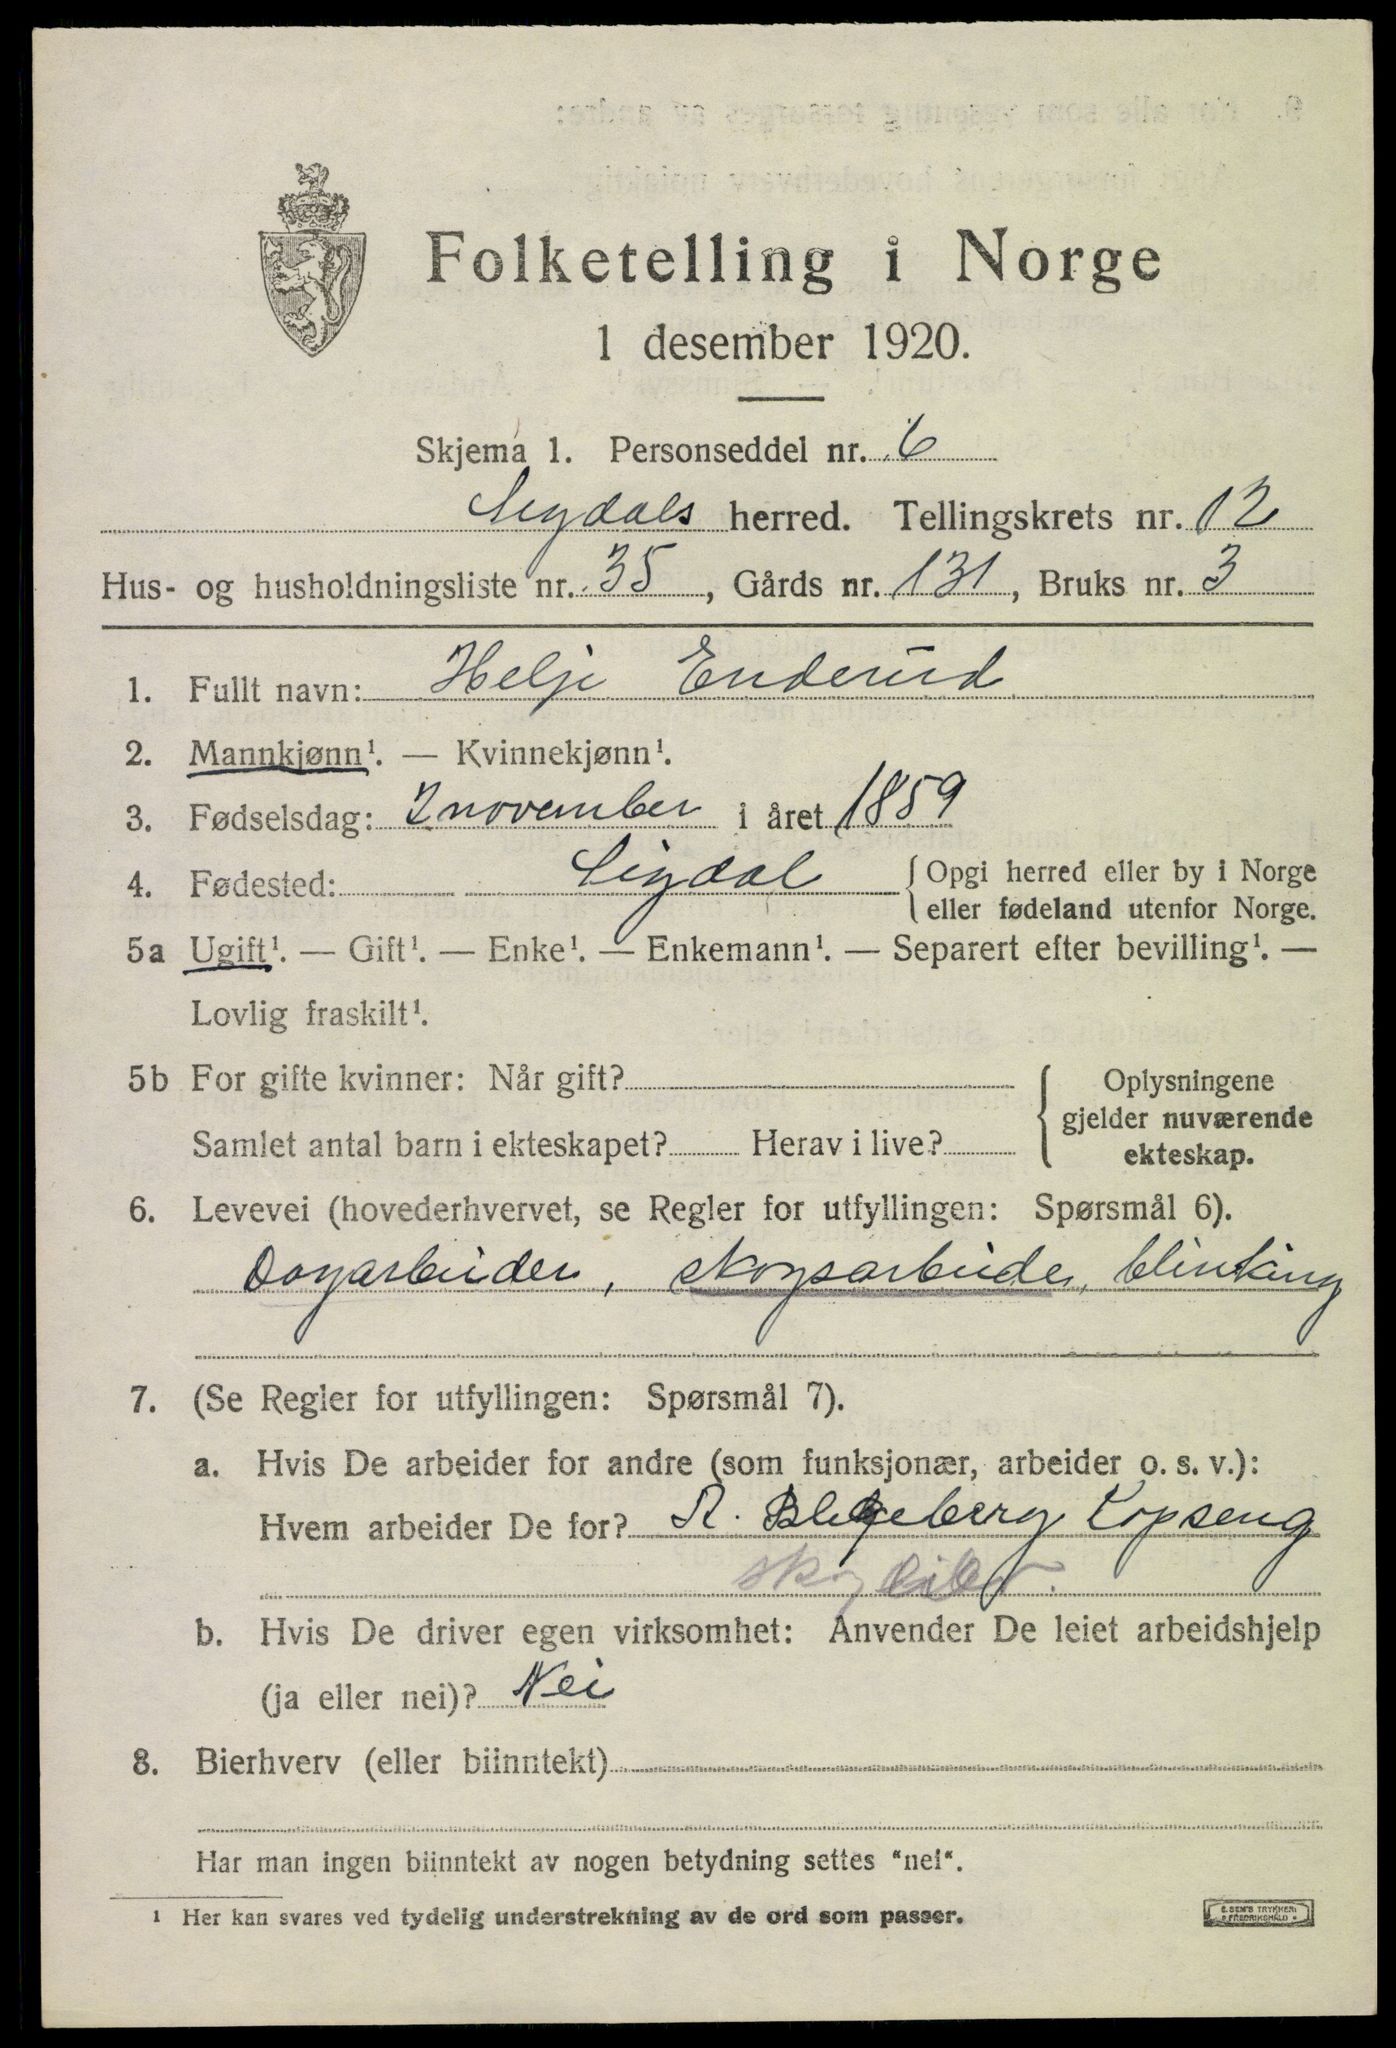 Folketelling i Norge
1 desember 1920.
Skjema 1. Personseddel nr. 6
Sigdals herred. Tellingskrets nr. 12
Hus- og husholdningsliste nr. 35, Gårds nr. 131, Bruks nr. 3
1. Fullt navn: Helje Enderud
2. Mannkjønn¹. — Kvinnekjønn¹.
3. Fødselsdag: 2 november i året 1859
4. Fødested: Sigdal { Opgi herred eller by i Norge
eller fødeland utenfor Norge.
5a Ugift¹. — Gift¹. — Enke¹. — Enkemann¹. — Separert efter bevilling¹. —
Lovlig fraskilt¹.
5b For gifte kvinner: Når gift? { Oplysningene
gjelder nuværende
Samlet antal barn i ekteskapet? Herav i live? ekteskap.
6. Levevei (hovederhvervet, se Regler for utfyllingen: Spørsmål 6).
Dagarbeider, skogsarbeide, blinking
7. (Se Regler for utfyllingen: Spørsmål 7).
a. Hvis De arbeider for andre (som funksjonær, arbeider o. s. v.):
Hvem arbeider De for? A.
skogeier.
b. Hvis De driver egen virksomhet: Anvender De leiet arbeidshjelp
(ja eller nei)? Nei
8. Bierhverv (eller biinntekt)
Har man ingen biinntekt av nogen betydning settes "nei".
¹ Her kan svares ved tydelig understrekning av de ord som passer.
E. SEM'S TRYKKERI
FREDRIKSHALD